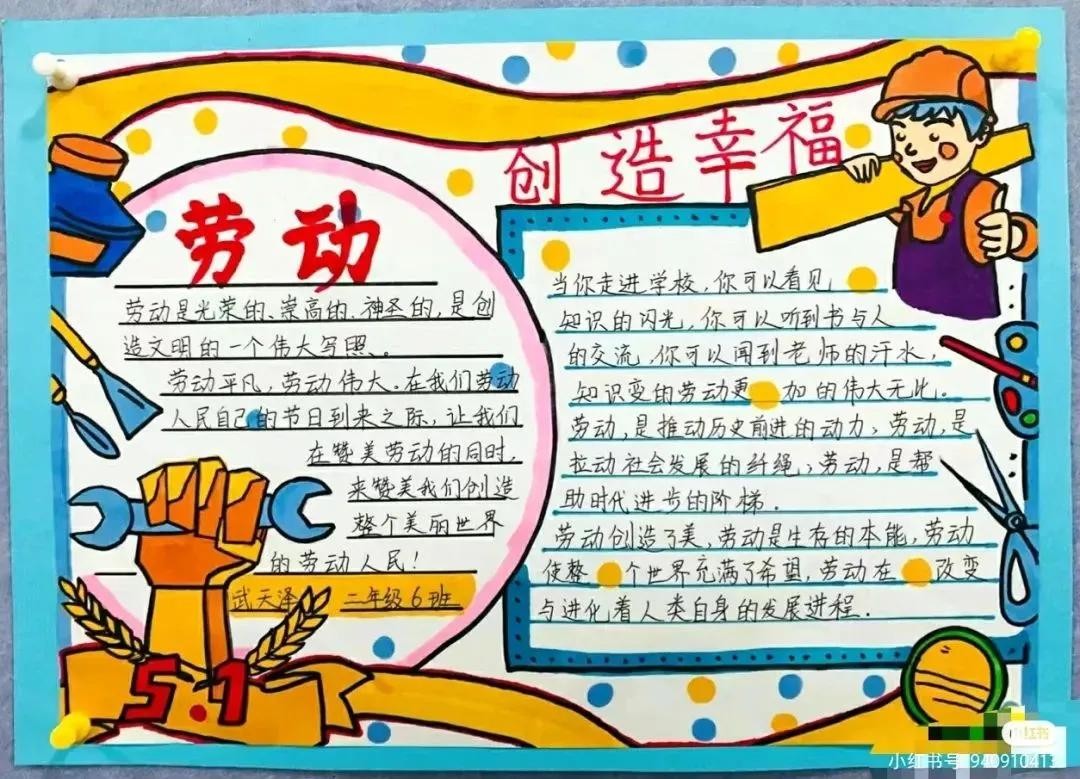 创造幸福
劳动
劳动是光荣的、崇高的、神圣的，是创
造文明的一个伟大写照、。
劳动平凡，劳动伟大。在我们劳动
人民自己的节日到来之际，让我们
在赞美劳动的同时，
来赞美我们创造
整个美丽世界
的劳动人民！
武天泽 二年级6班
5.1
当你走进学校，你可以看见
知识的闪光，你可以听到书与人
的交流，你可以闻到老师的汗水，
知识变的劳动更加的伟大无比。
劳动，是推动历史前进的动力，劳动，是
拉动社会发展的纤绳，劳动，是帮
助时代进步的阶梯．
劳动创造了美，劳动是生存的本能，劳动
使整个世界充满了希望，劳动在改变
与进化着人类自身的发展进程．
小红书
小红书号